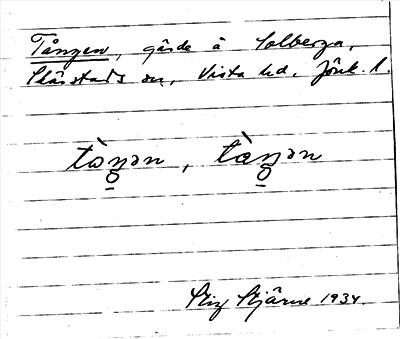 Tången, gärde å Solberga,
Skärstads sn, Vista hd. Jönk. l.
tòŋən, tàŋən
Stig Stjärne 1934.